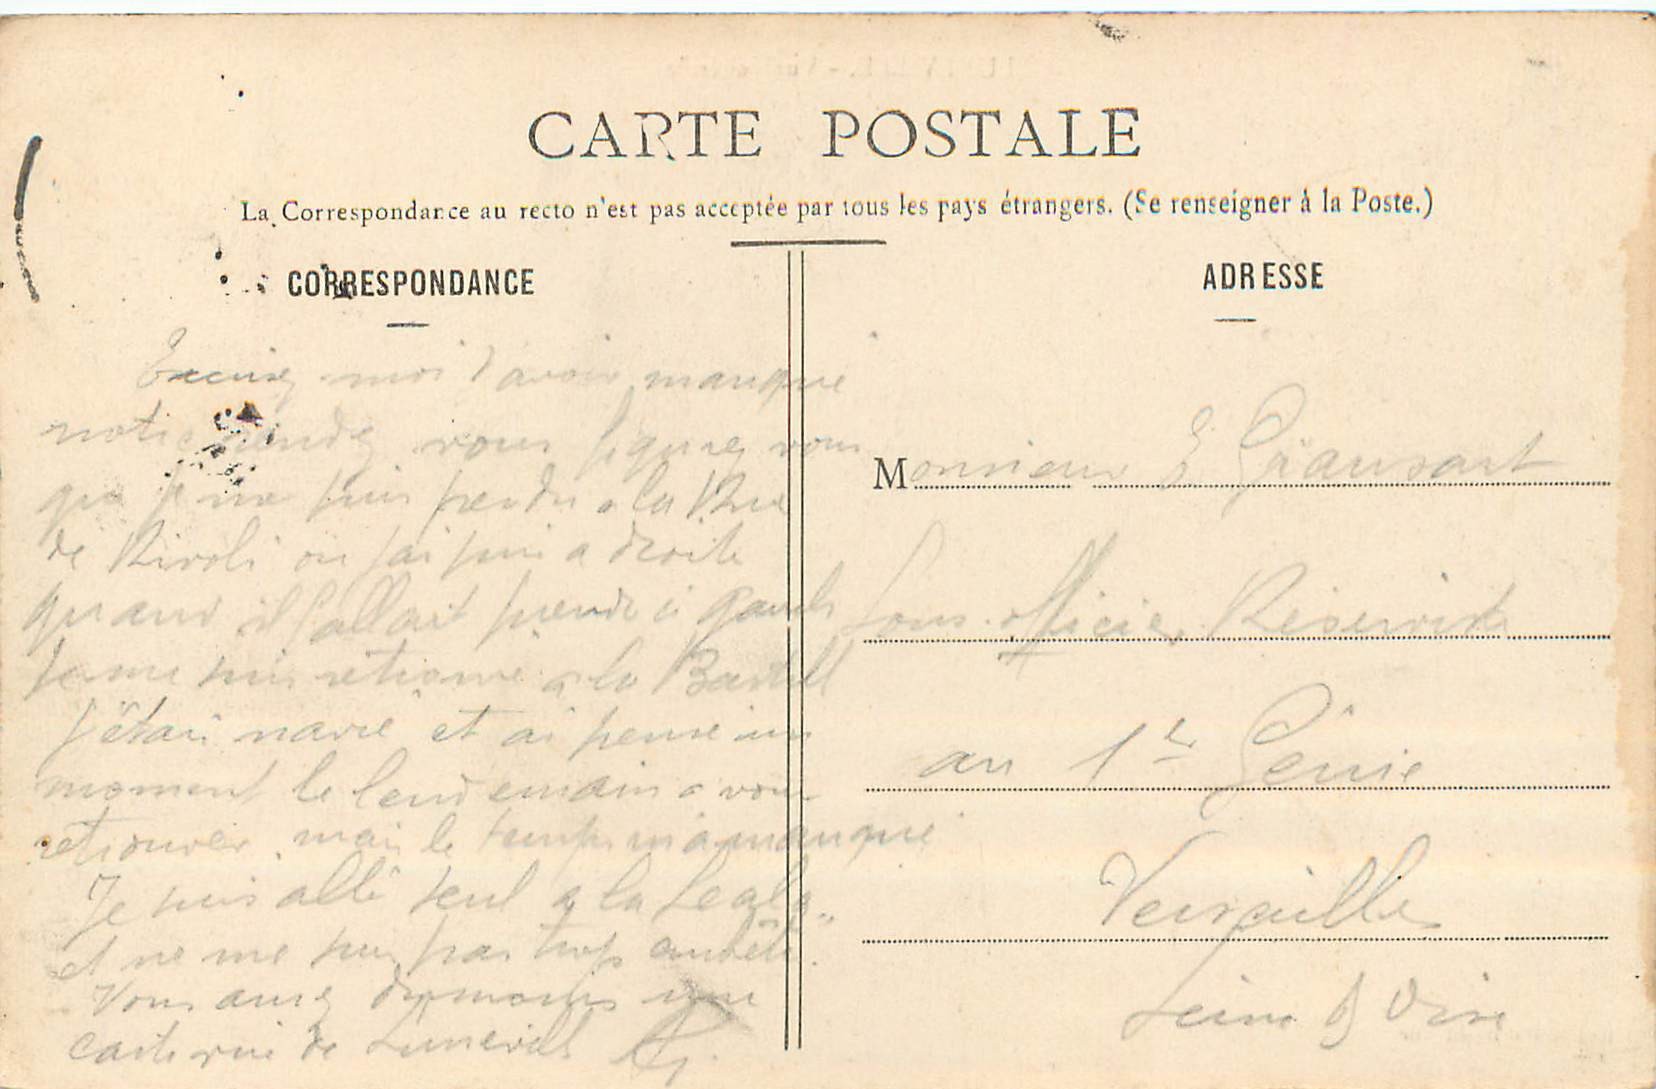 CARTE POSTALE
La Correspondance au recto n'est pas acceptée par tous les pays étrangers. (Se renseigner à la Poste.)
CORRESPONDANCE
Excusez moi d'avoir manqué
notre rendez vous figurez vous
que je me suis perdu a la Rue
de Rivoli ou j'ai pris a droite
quand il fallait prendre à gauche
Je me suis retrouvé a la Bastill
J'étais navré et ai pensé un
moment le lendemain a vous
retrouver mais le temps m'a manqué
Je suis allé seul a la
et ne me suis pas trop embêté.
Vous aurez du moins une
carte vue de Luneville
ADRESSE
Monsieur E.
Sous-officier Réserviste
au 1er Génie
Versailles
Seine & Oise